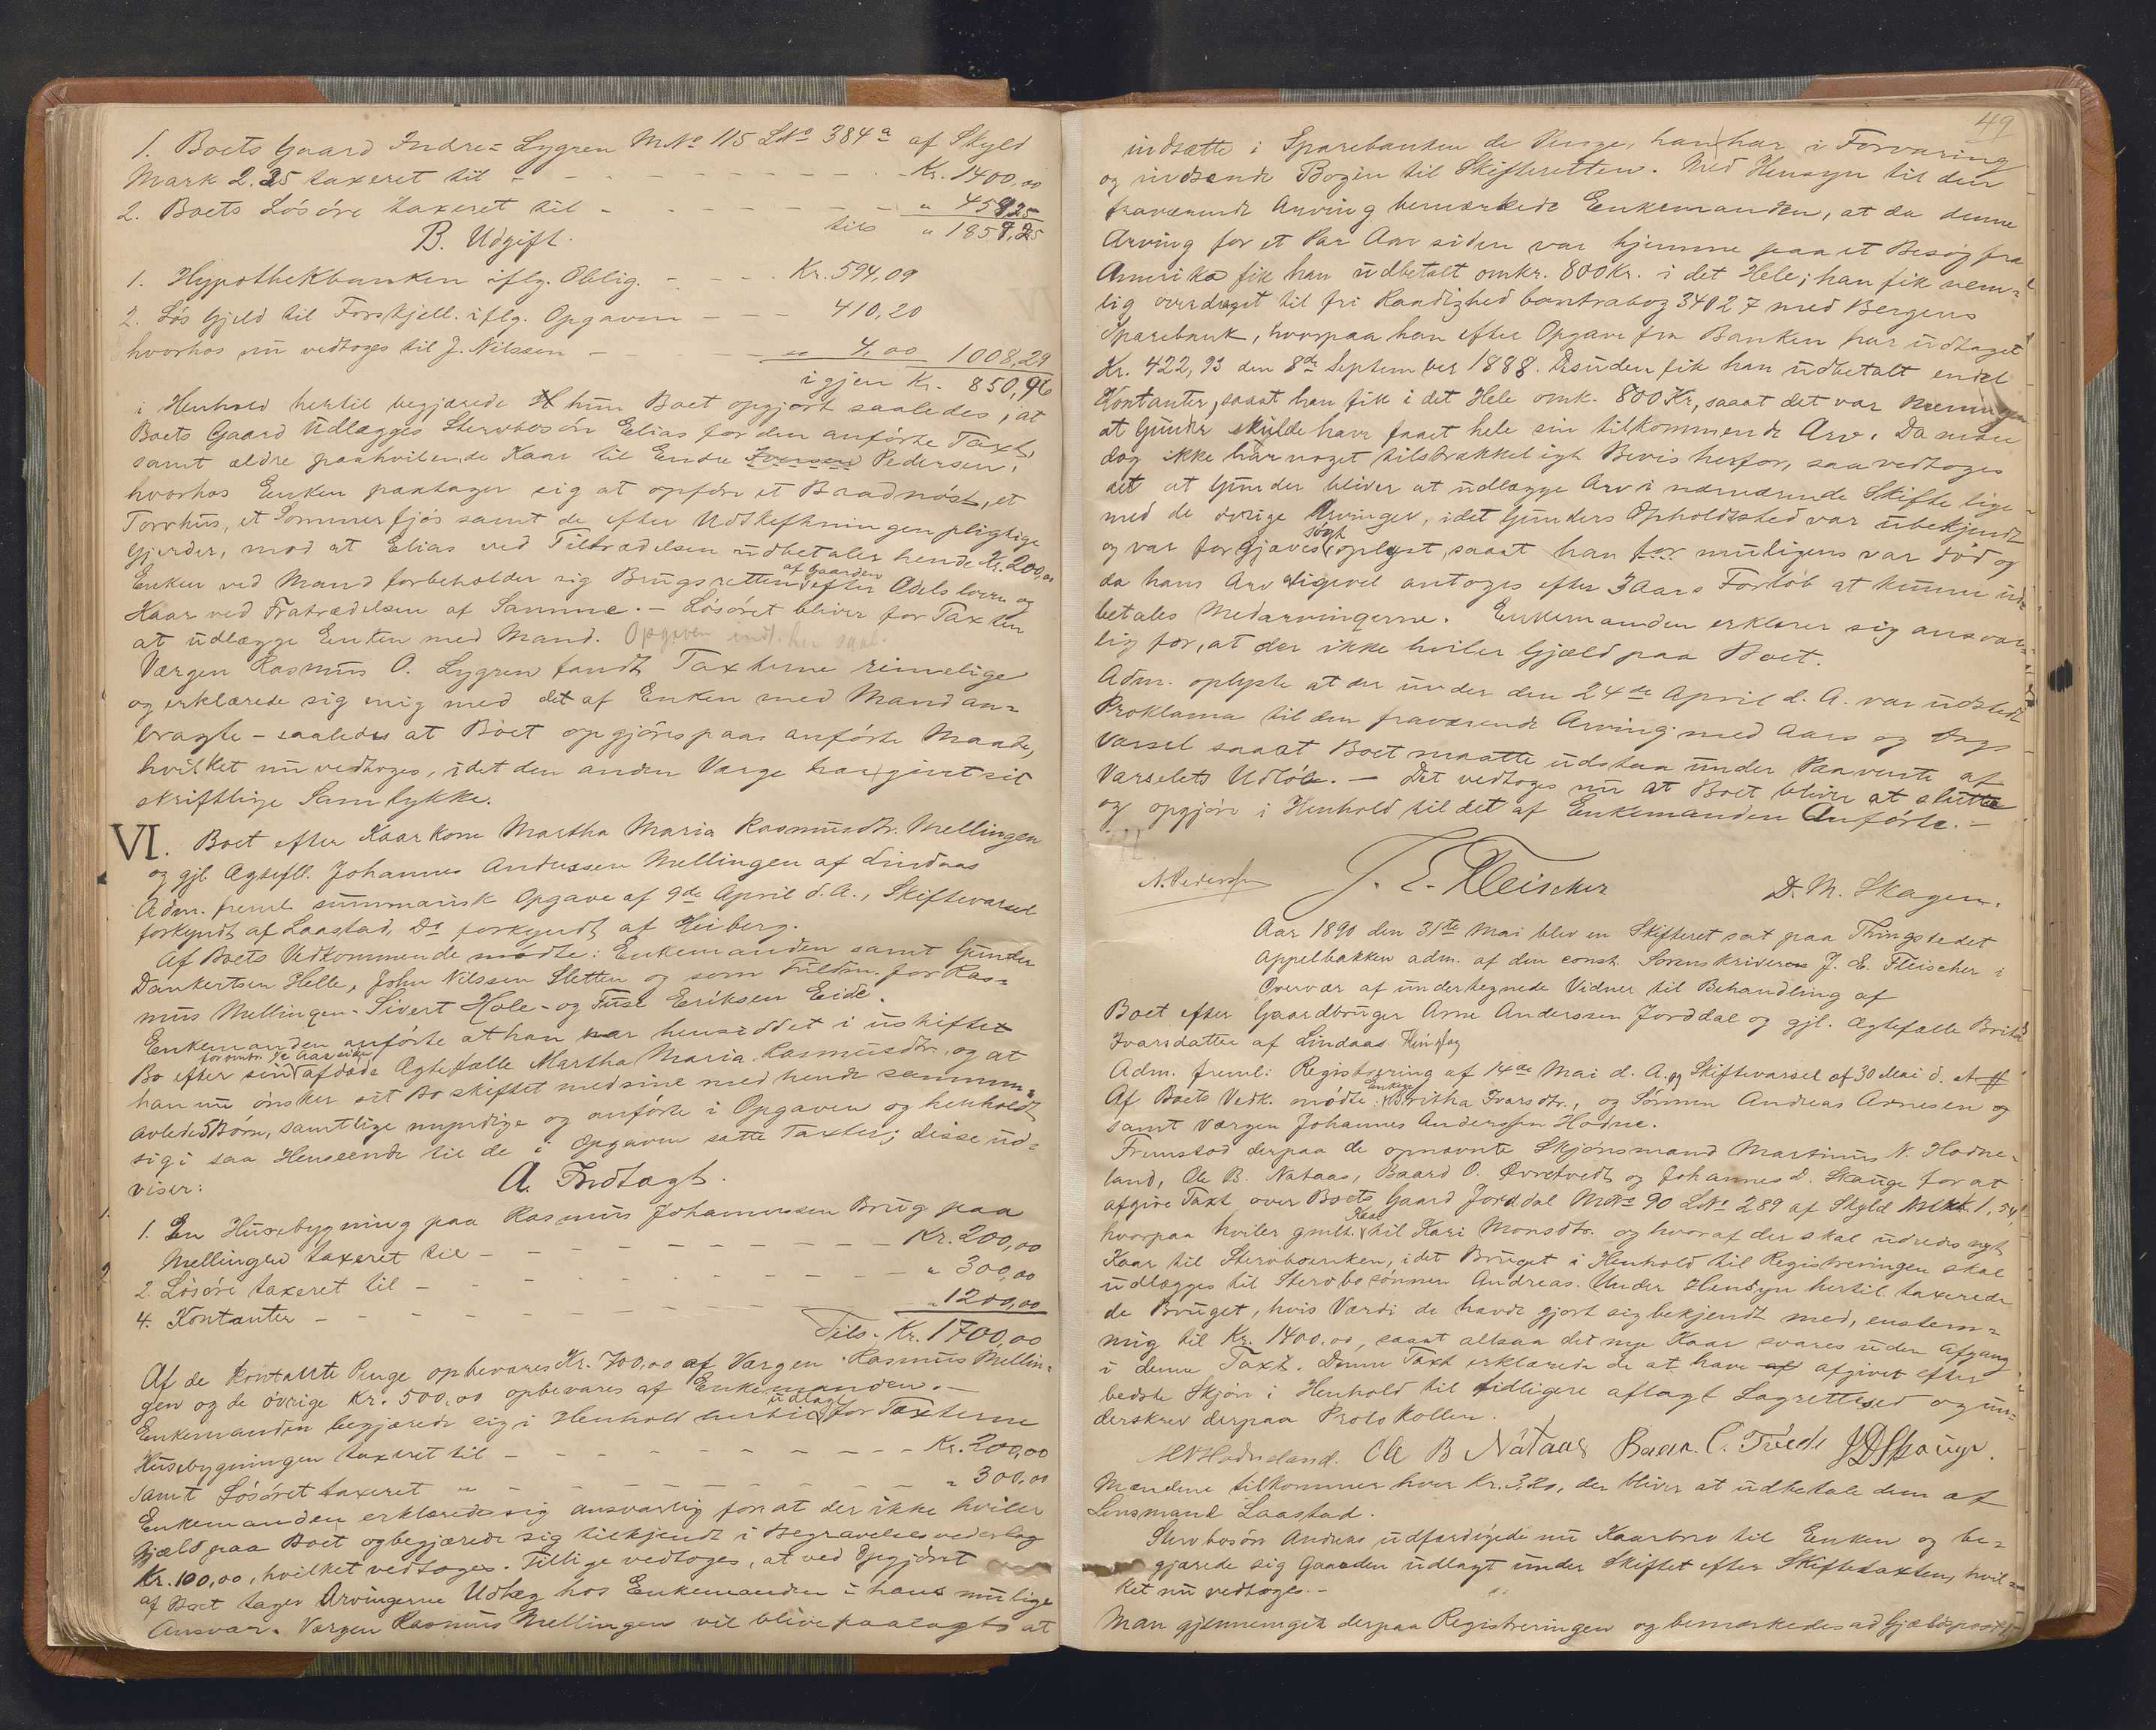 1. Boets Gaard Indre-Lygren MNo 115 LNo 384a af Skyld
Mark 2.25 taxeret til - - - - Kr. 1400,00
2. Boets Løsøre taxeret til - - - " 459,25
tils " 1859,25
B. Udgift.
1. Hypothekbanken iflg. Oblig. - - - Kr. 594,09
2. Løs Gjeld til Forskjell. iflg. Opgaven - - - 410,20
hvorhos nu vedtoges til J. Nilssen - - 4,00 1008,29
igjen Kr. 850,96
i Henhold hertil begjærede hun Boet opgjort saaledes, at
Boets Gaard Udlægges Stervbosøn Elias for den anførte Taxt,
samt ældre paahvilende Kaar til Endre Iversen Pedersen,
hvorhos Enken paatager sig at opføre et Baadnøst, et
Torvhus, et Sommerfjøs samt de efter Udskiftningen pligtige
Gjerder, mod at Elias ved Tiltrædelsen udbetaler hende Kr. 200,00
Enken ved Mand forbeholder sig Brugsretten af Gaarden efter Odelsloven og
Kaar ved Fratrædelsen af Samme. - Løsøret bliver for Taxten
at udlægge Enken med Mand. Opgaven indt. her saal.
Værgen Rasmus O. Lygren fandt Taxterne rimelige
og erklærede sig enig med det af Enken med Mand an-
bragte - saaledes at Boet opgjøres paa anførte Maade,
hvilket nu vedtoges, idet den anden Værge har givet sit
skriftlige Samtykke.
VI. Boet efter Kaarkone Martha Maria Rasmusdtr. Mellingen
og gjl. Ægtefll. Johannes Anderssen Mellingen af Lindaas
Adm. freml. summarisk Opgave af 9de April d. A., Skiftevarsel
forkyndt af Laastad, Do forkyndt af Heiberg.
Af Boets Vedkommende mødte: Enkemanden samt Gunder
Dankertsen Helle, John Nilssen Sletten og som Fuldm. for Ras-
mus Mellingen - Sivert Hole - og Tuse Eriksen Eide.
Enkemanden anførte at han var hensiddet i uskiftet
Bo efter sin for omtr. 1/2 Aar siden afdøde Ægtefælle Martha Maria Rasmusdtr., og at
han nu ønsker sit Bo skiftet med sine med hende sammen-
avlede Børn, samtlige myndige og anførte i Opgaven og henholdt
sig i saa Henseende til de i Opgaven satte Taxter; disse ud-
viser:
A. Indtægt.
1. En Husebygning paa Rasmus Johannessen Brug paa
Mellingen taxeret til - - - - Kr. 200,00
2. Løsøre taxeret til - - - - " 300,00
4. Kontanter - - - - " 1200,00
Tils. Kr. 1700,00
Af de kontante Penge opbevares Kr. 700,00 af Værgen Rasmus Mellin-
gen og de øvrige Kr. 500,00 opbevares af Enkemanden. -
Enkemanden begjærede sig i Henhold hertil udlagt for Taxterne
Husebygningen taxeret til - - - - Kr. 200,00
samt Løsøret taxeret " - - - - " 300,00
Enkemanden erklærede sig ansvarlig for at der ikke hviler
Gjæld paa Boet og begjærede sig tilkjendt i Begravelsesvederlag
Kr. 100,00, hvilket vedtoges. Tillige vedtoges, at ved Opgjøret
af Boet tager Arvingerne Udlæg hos Enkemanden i hans mulige
Ansvar. Værgen Rasmus Mellingen vil blive paalagt at
49
indsætte i Sparebanken de Penge, han har i Forvaring
og indsende Bogen til Skifteretten. Med Hensyn til den
fraværende Arving bemærkede Enkemanden, at da denne
Arving for et Par Aar siden var hjemme paa et Besøg fra
Amerika fik han udbetalt omkr. 800 Kr. i det Hele; han fik nem-
lig overdraget til fri Raadighed Contrabog 34027 med Bergens
Sparebank, hvorpaa han efter Opgave fra Banken har udtaget
Kr. 422,93 den 8de September 1888. Desuden fik han udbetalt endel
Kontanter, saaat han fik i det Hele omk. 800 Kr, saaat det var Meningen
at Gunder skulde have faaet hele sin tilkommende Arv. Da man
dog ikke har noget tilstrækkeligt Bevis herfor, saa vedtoges
det at Gunder bliver at udlægge Arv i nærværende Skifte lige-
med de øvrige Arvinger, idet Gunders Opholdssted var ubekjendt
og var forgjæves søgt oplyst, saaat han for muligens var død og
da hans Arv aligevel antoges efter 3 Aars Forløb at kunne ud-
betales Medarvingerne. Enkemanden erklærer sig ansvar-
lig for, at der ikke hviler Gjæld paa Boet.
Adm. oplyste at der under den 24de April d. A. var udstedt
Proklama til den fraværende Arving med Aars og Dags
Varsel saaat Boet maatte udstaa under Paavente af
Varselets Udløb. - Det vedtoges nu at Boet bliver at slutte
og opgjøre i Henhold til det af Enkemanden Anførte. -
N. Pedersen J. E. Fleischer D. M. Skagen.
Aar 1890 den 31te Mai blev en Skifteret sat paa Thingstedet
Appelbakken adm. af den const. Sorenskriver J. E. Fleischer i
Overvær af undertegnede Vidner til Behandling af
Boet efter Gaardbruger Arne Anderssen Jorddal og gjl. Ægtefælle Britha
Ivarsdatter af Lindaas
Adm. freml: Registrering af 14de Mai d. A. og Skiftevarsel af 30 Mai d. A.
Af Boets Vedk. mødte: Enken Britha Ivarsdtr., og Sønnen Andreas Arnesen og
samt Værgen Johannes Anderssen Hodne.
Fremstod derpaa de opnævnte Skjønsmænd Martinus N. Hodne-
land, Ole B. Nataas, Baard O. Øvretvedt og Johannes D. Skauge for at
afgive Taxt over Boets Gaard Jorddal MNo 90 LNo 289 af Skyld Mrk. 1,54,
hvorpaa hviler gmlt. Kaar til Kari Monsdtr. og hvoraf der skal udredes nyt
Kaar til Stervboenken, idet Bruget i Henhold til Registreringen skal
udlægges til Stervbosønnen Andreas. Under Hensyn hertil taxerede
de Bruget, hvis Værdi de havde gjort sig bekjendt med, enstem-
mig til Kr. 1400.00, saaat altsaa det nye Kaar svares uden Afgang
i denne Taxt. Denne Taxt erklærede de at have afgivet efter
bedste Skjøn i Henhold til tidligere aflagt Lagrettesed og un-
derskrev derpaa Protokollen.
M N Hodneland. Ole B Nataas Baar. O. Tvedt J D Skauge.
Mændene tilkommer hver Kr. 3,20, der bliver at udbetale dem af
Lensmand Laastad.
Stervbosøn Andreas udfærdigede nu Kaarbrev til Enken og be-
gjærede sig Gaarden udlagt under Skiftet efter Skiftetaxten, hvil-
ket nu vedtoges. -
Man gjennemgik derpaa Registreringen og bemærkedes ad Gjældspost